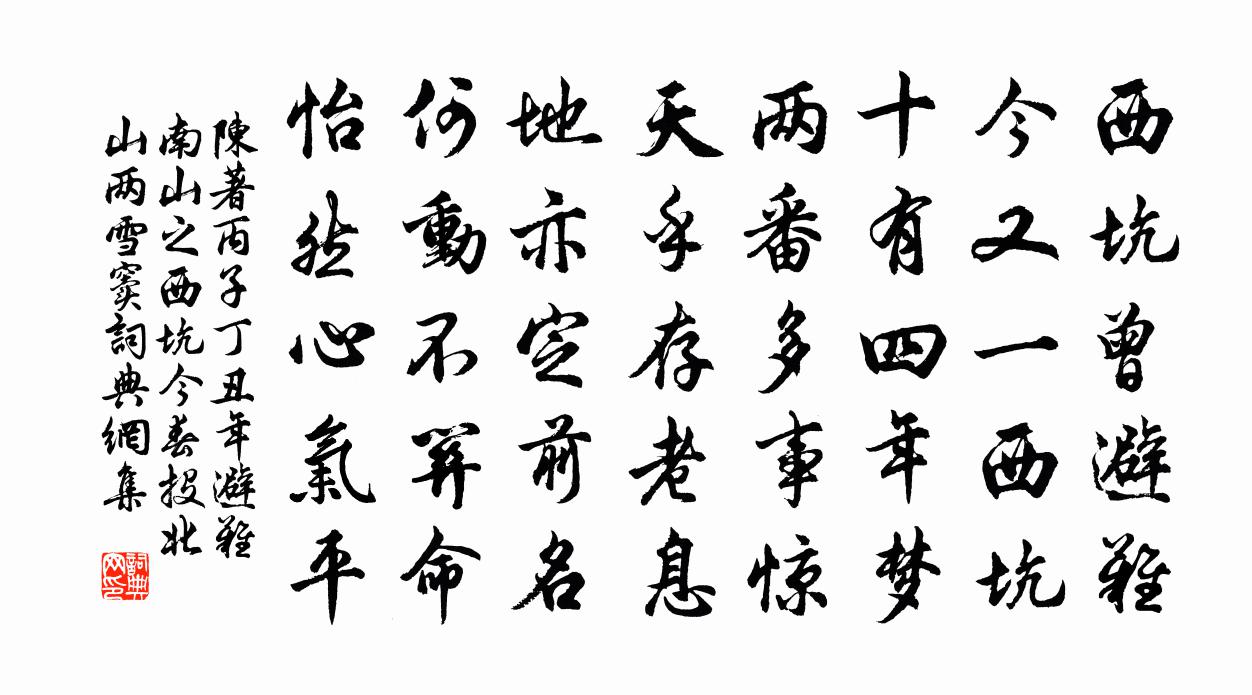 西坑曾避難
今又一西坑
十有四年梦
两番多事惊
天乎存老息
地亦定前名
何動不關命
怡然心氣平
陳著丙子丁丑年避難
南山之西坑今春投北
山两雪竇詞典網集
詞典
网印